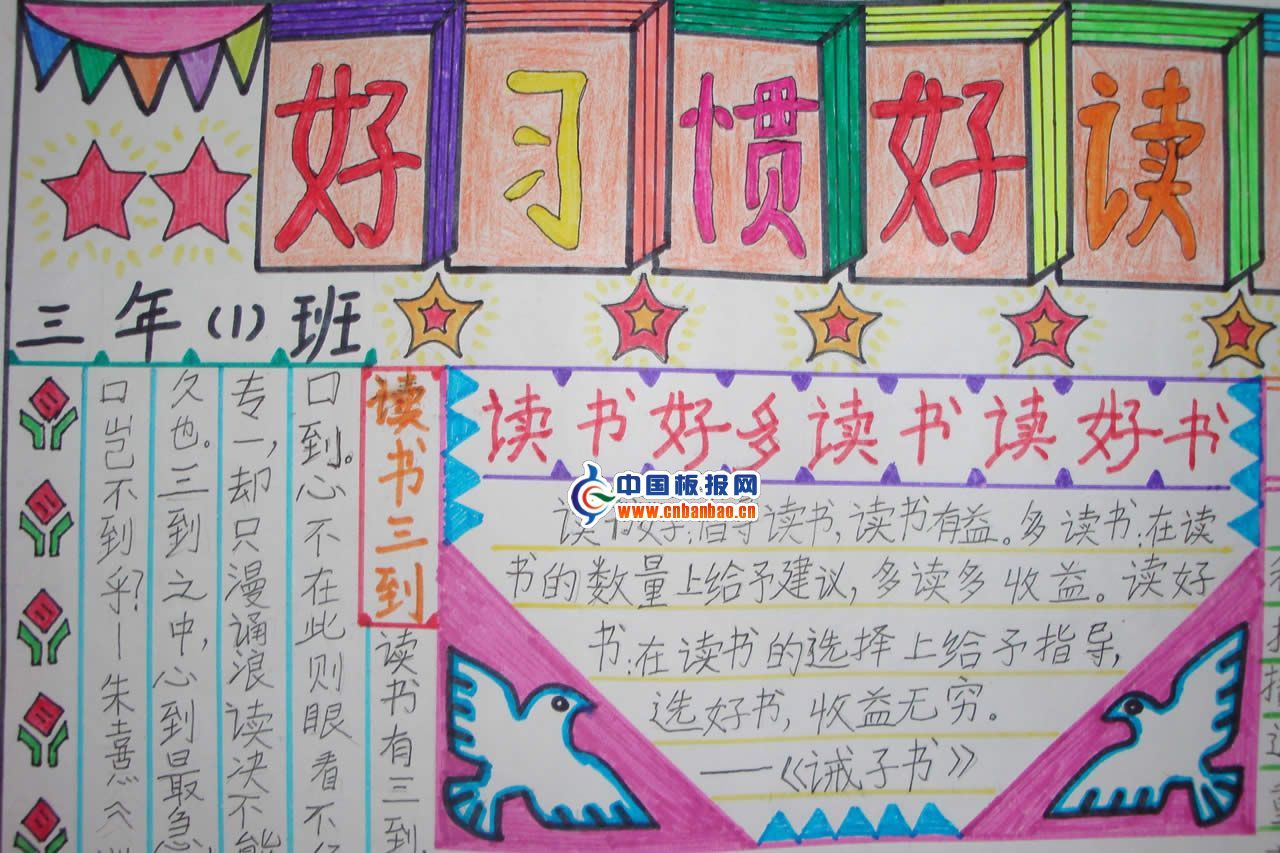 好习惯好读
三年(1)班
读书三到
读书有三到,
口到。心不在此则眼看不
专一,却只漫诵浪读决不能
久也。三到之中,心到最急,
口岂不到乎?—朱熹《
读书好多读书读好书
中国板报网
www.cnbanbao.cn
读书好:指导读书,读书有益。多读书:在读
书的数量上给予建议,多读多收益。读好
书:在读书的选择上给予指导,
选好书,收益无穷。
——《诫子书》